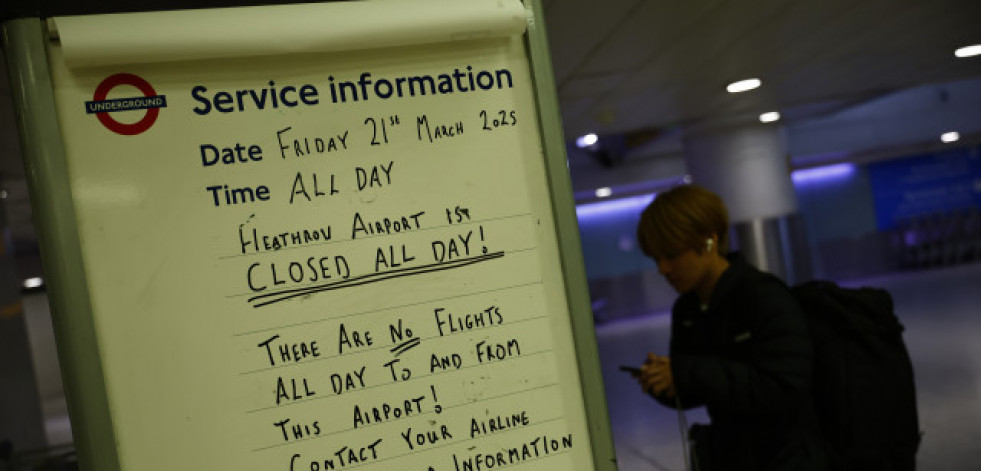 UNDERGROUND
Service information
Date FRIDAY 21ST MARCH 2025
Time ALL DAY
HEATHROW AIRPORT IS
CLOSED ALL DAY!
THERE ARE NO FLIGHTS
ALL DAY TO AND FROM
THIS AIRPORT!
CONTACT YOUR AIRLINE
INFORMATION